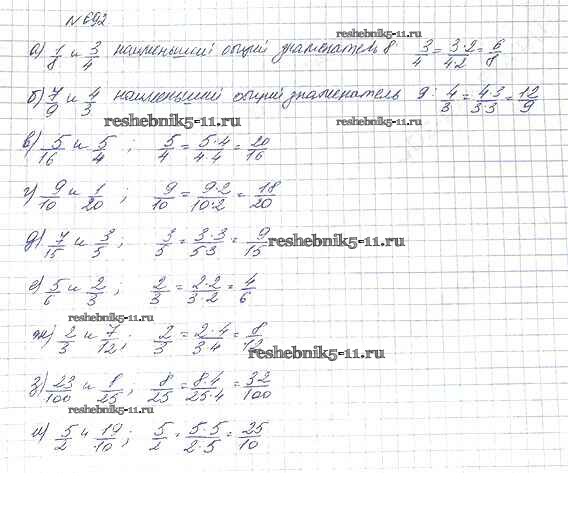 №692
reshebnik5-11.ru
а) 1/8 и 3/4 наименьший общий знаменатель 8 3/4 = 3·2/4·2 = 6/8
б) 7/9 и 4/3 наименьший общий знаменатель 9: 4/3 = 4·3/3·3 = 12/9
reshebnik5-11.ru reshebnik5-11.ru
в) 5/16 и 5/4; 5/4 = 5·4/4·4 = 20/16
г) 9/10 и 1/20; 9/10 = 9·2/10·2 = 18/20
д) 7/15 и 3/5; 3/5 = 3·3/5·3 = 9/15 reshebnik5-11.ru
е) 5/6 и 2/3; 2/3 = 2·2/3·2 = 4/6
reshebnik5-11.ru
ж) 2/3 и 7/12; 2/3 = 2·4/3·4 = 8/12
reshebnik5-11.ru
з) 23/100 и 8/25; 8/25 = 8·4/25·4 = 32/100
reshebnik5-11.ru
и) 5/2 и 19/10; 5/2 = 5·5/2·5 = 25/10